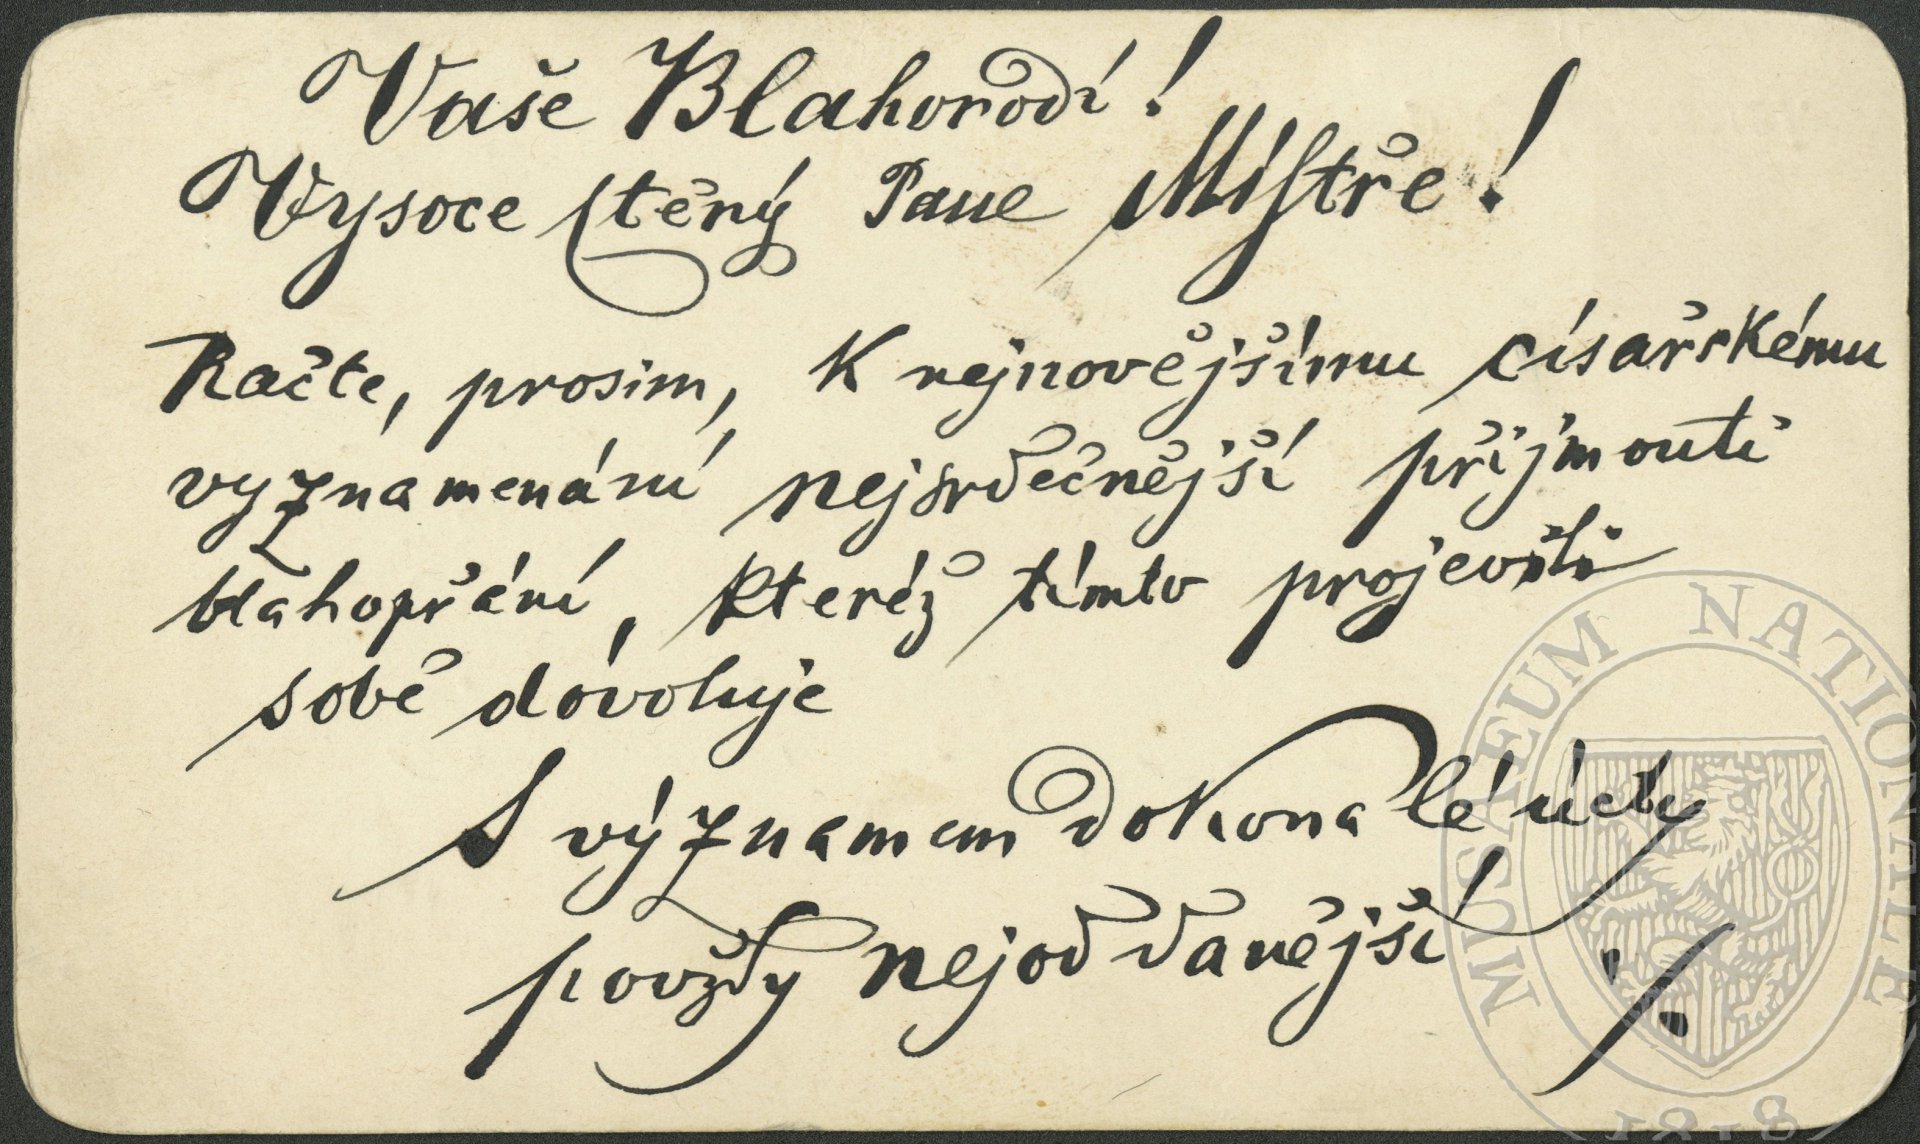 Vaše Blahorodí!
Vysoce ctěný Pane Mistře!
Račte, prosím, k nejnovějšímu císařskému
vyznamenání nejsrdečnější přijmouti
blahopřání, kteréž tímto projeviti
sobě dovoluje
S významem dokonalé úcty
povždy nejoddanější
MUSEUM NATIONALE
1818